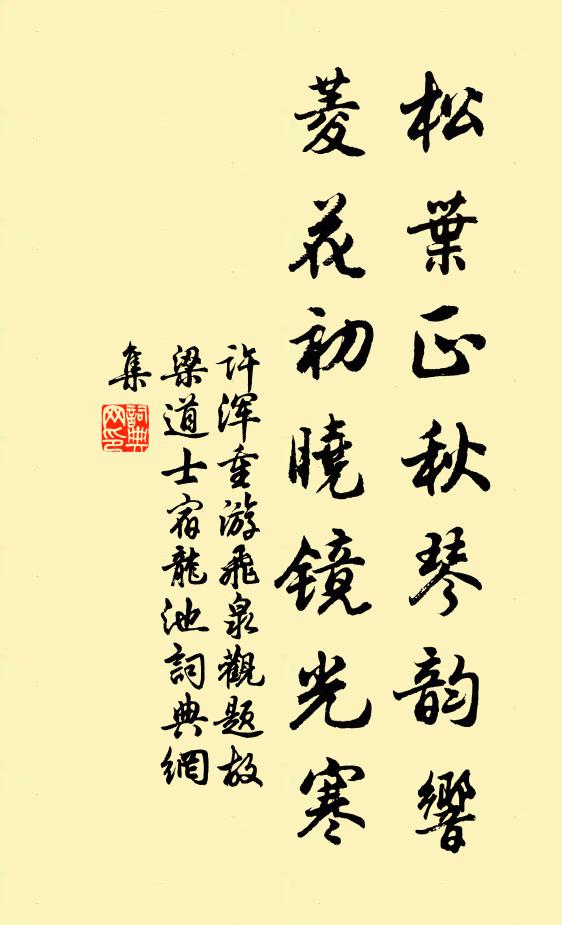 松葉正秋琴韵響
菱花初曉鏡光寒
许浑重游飛泉觀題故
梁道士宿龍池詞典網
集
詞典
网印